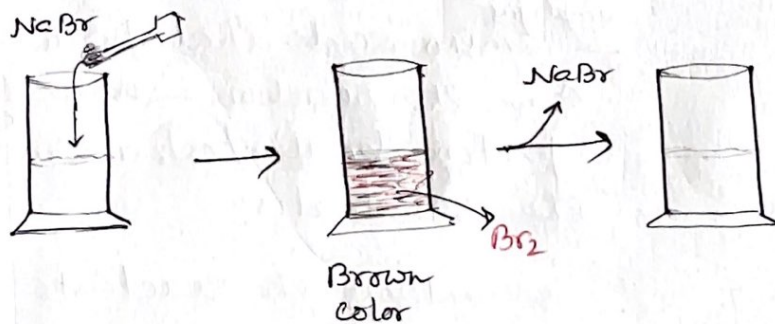 NaBr
NaBr
Br2
Brown
color